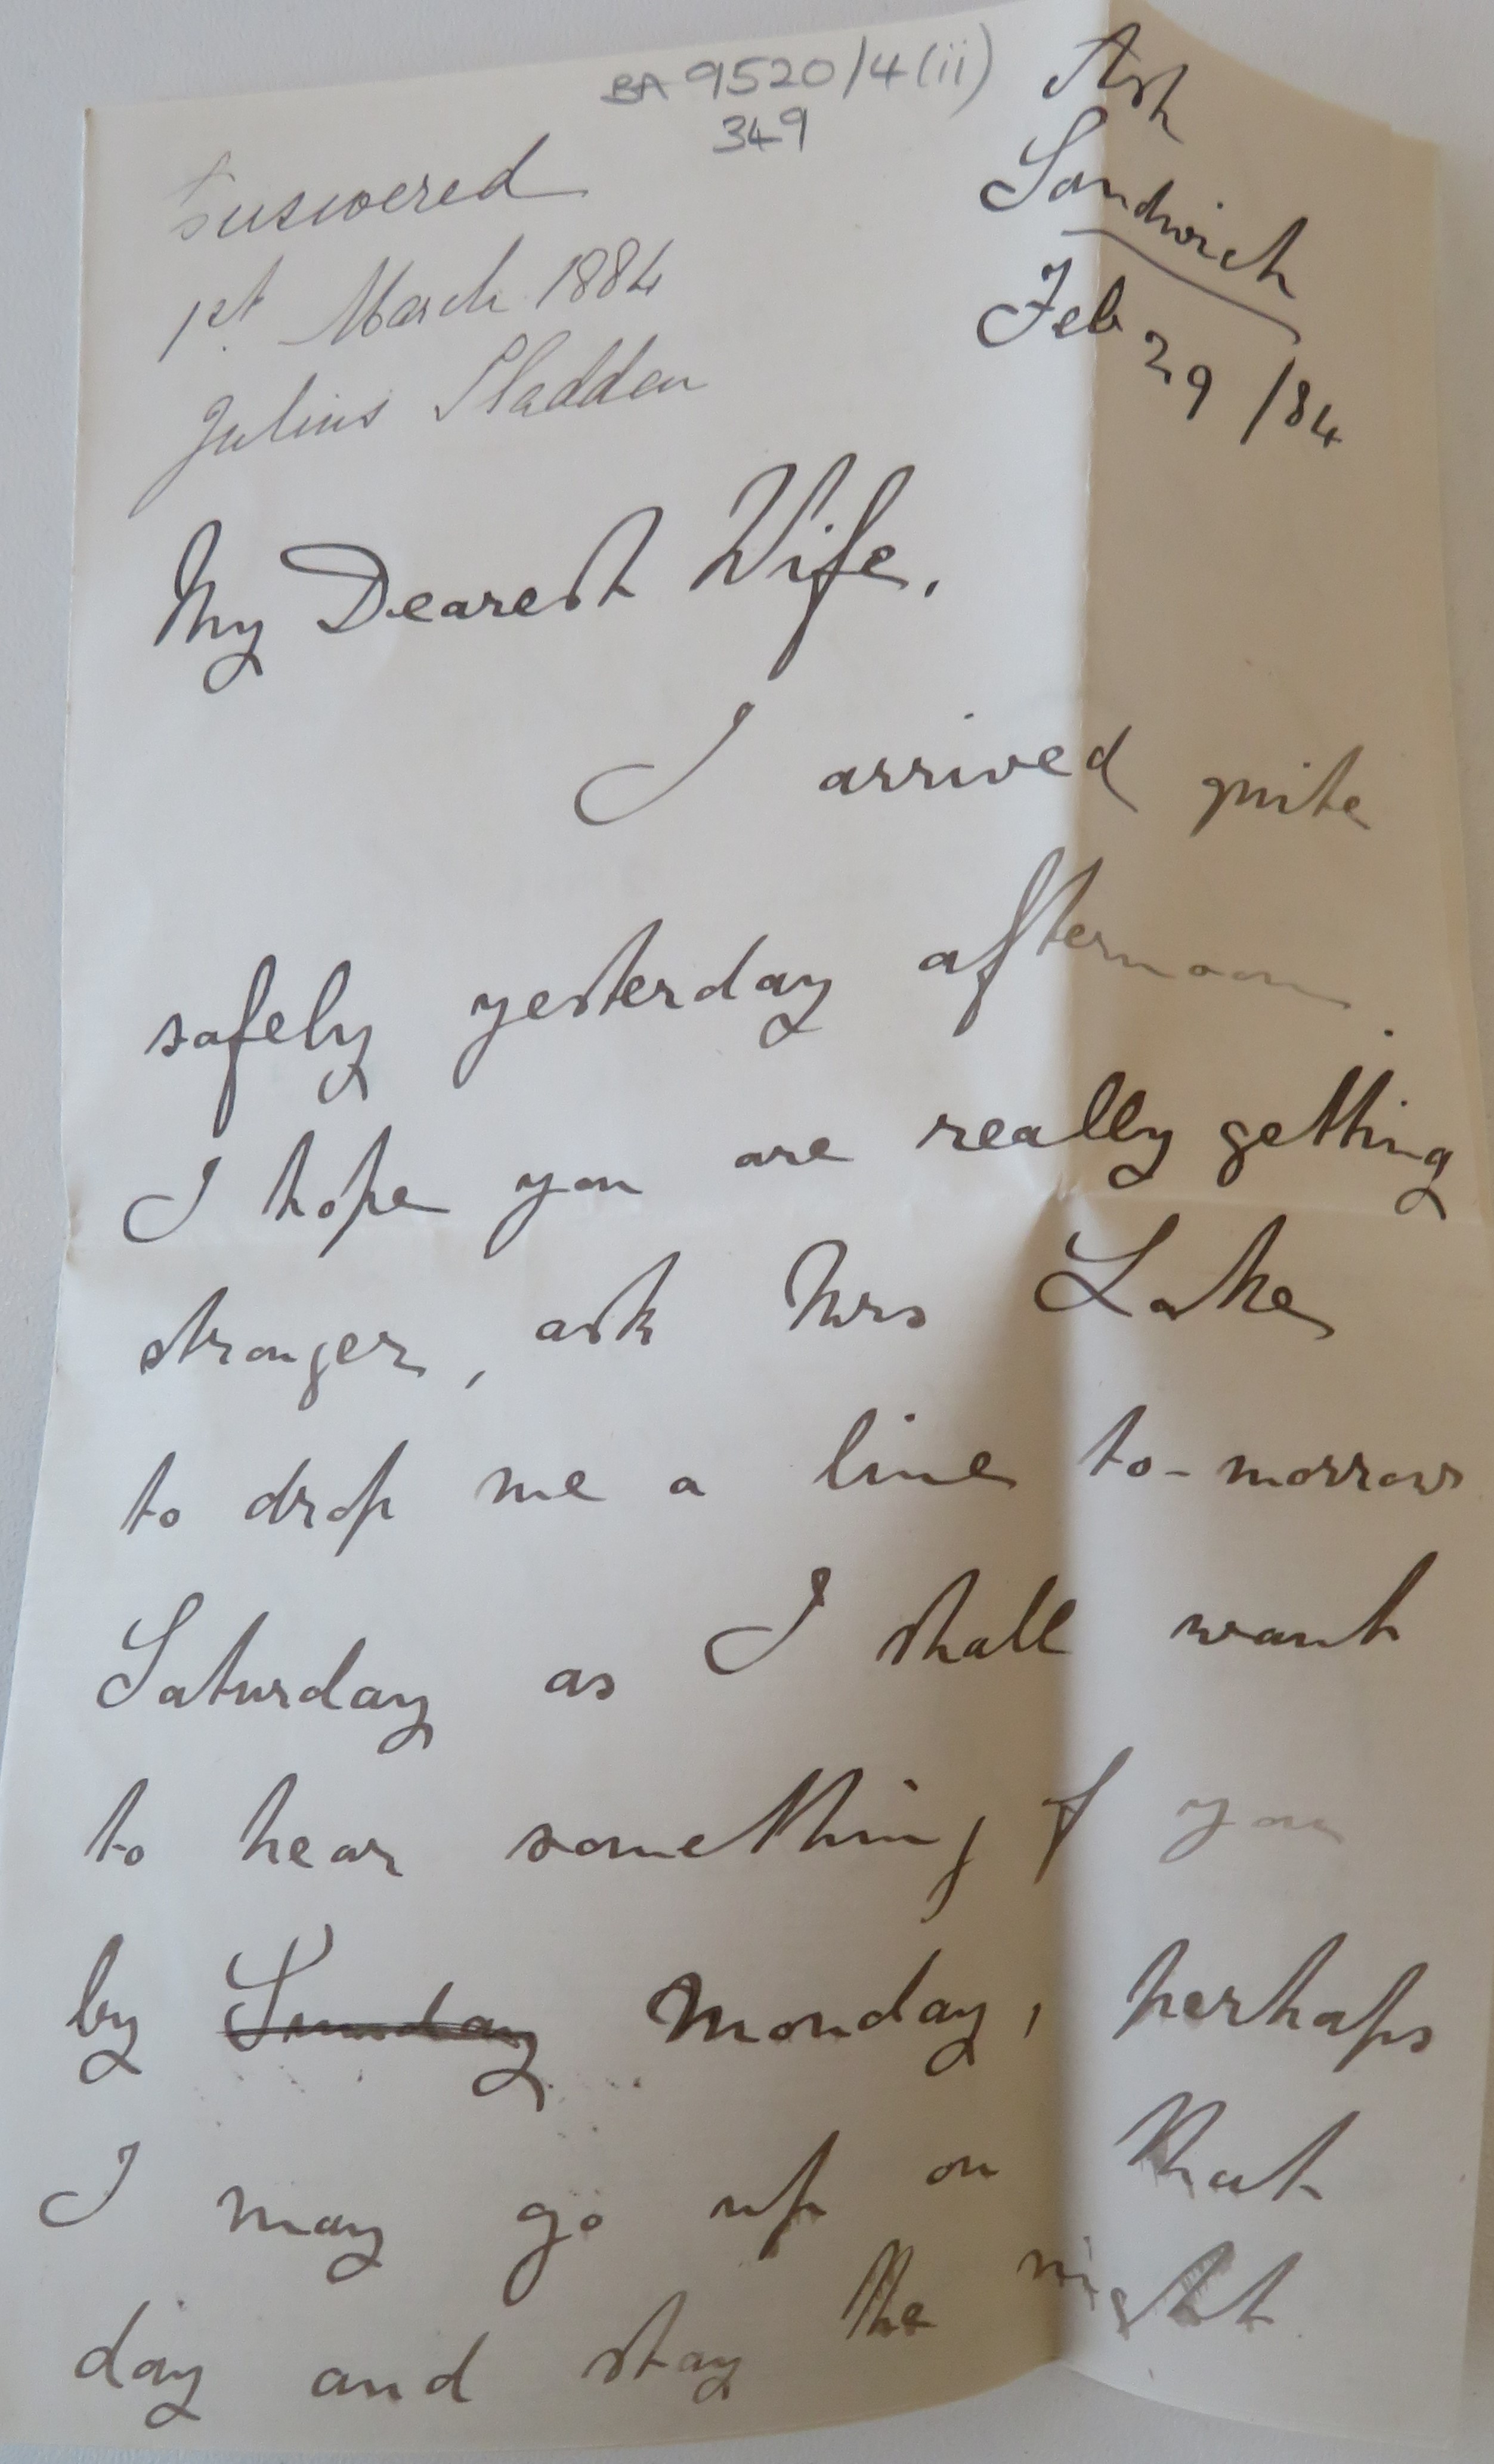 BA 9520/4(ii)
349
Ash
Sandwich
Feb 29 /84
Answered
1st March 1884
Julius Sladden
My Dearest Wife,
I arrived quite
safely yesterday afternoon.
I hope you are really getting
stronger, ask Mrs Lake
to drop me a line to-morrow
Saturday as I shall want
to hear something of you
by Sunday Monday, perhaps
I may go up on that
day and stay the night